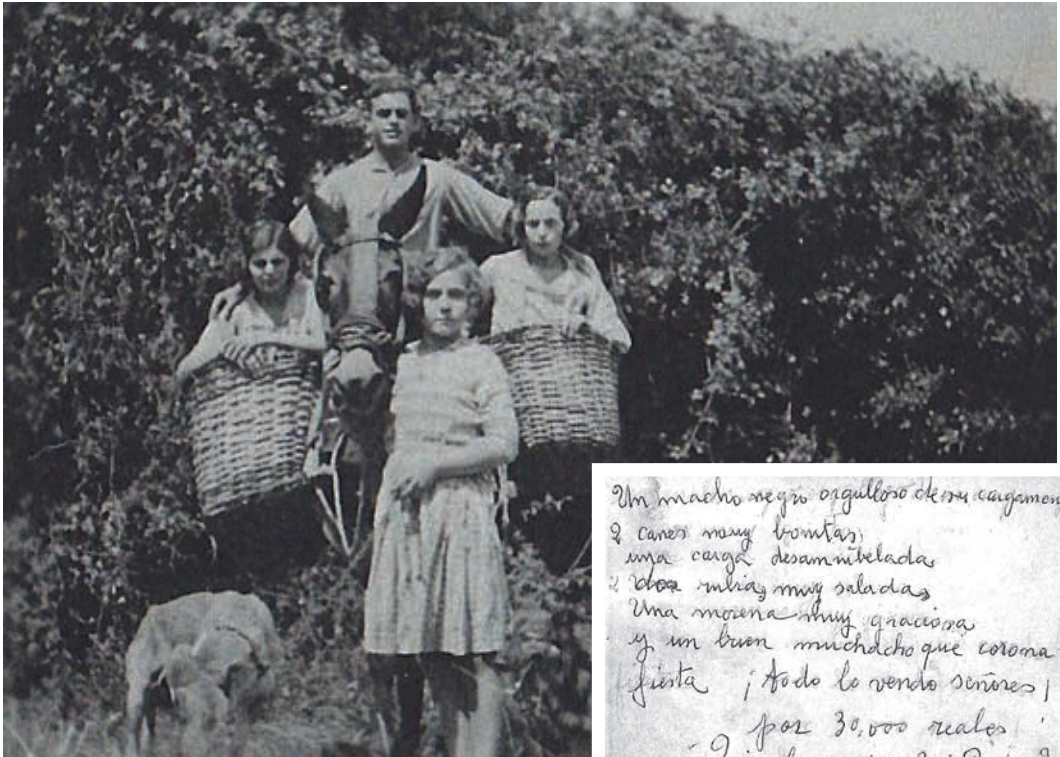 Un macho negro orgulloso de su cargamen
2 canes muy bonitas,
una carga desamnibelada,
2 rubias, muy saladas
Una morena muy graciosa
y un buen muchacho que corona
fiesta ¡Todo lo vendo señores!
por 30,000 reales